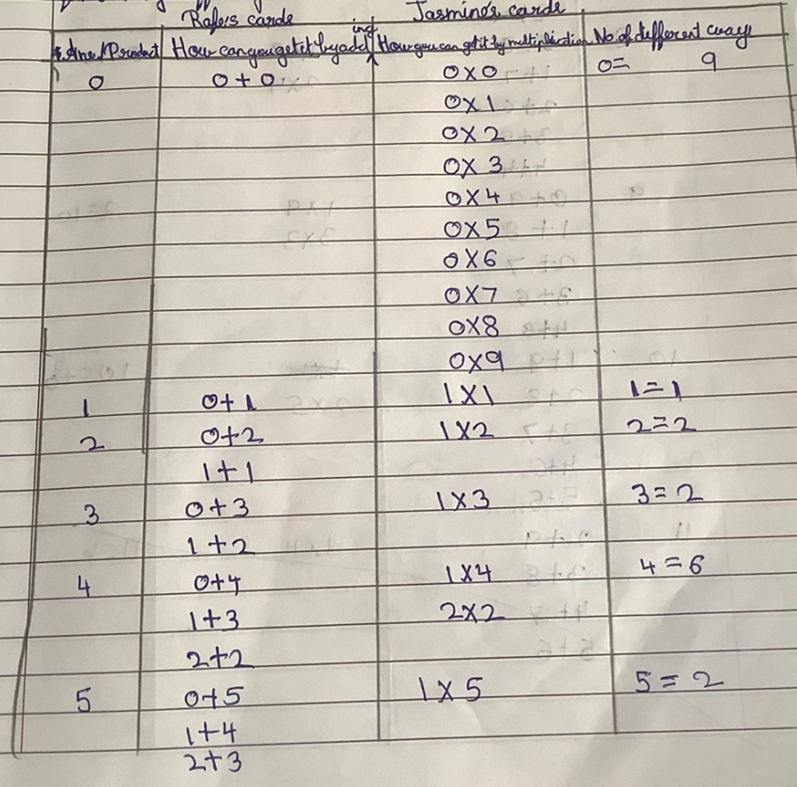 Rafe's cards Jasmine's cards
Ans/Product How can you get it by adding How you can get it by multiplication No. of different ways
0 0+0 0x0 0= 9
0x1
0x2
0x3
0x4
0x5
0x6
0x7
0x8
0x9
1 0+1 1x1 1=1
2 0+2 1x2 2=2
1+1
3 0+3 1x3 3=2
1+2
4 0+4 1x4 4=6
1+3 2x2
2+2
5 0+5 1x5 5=2
1+4
2+3